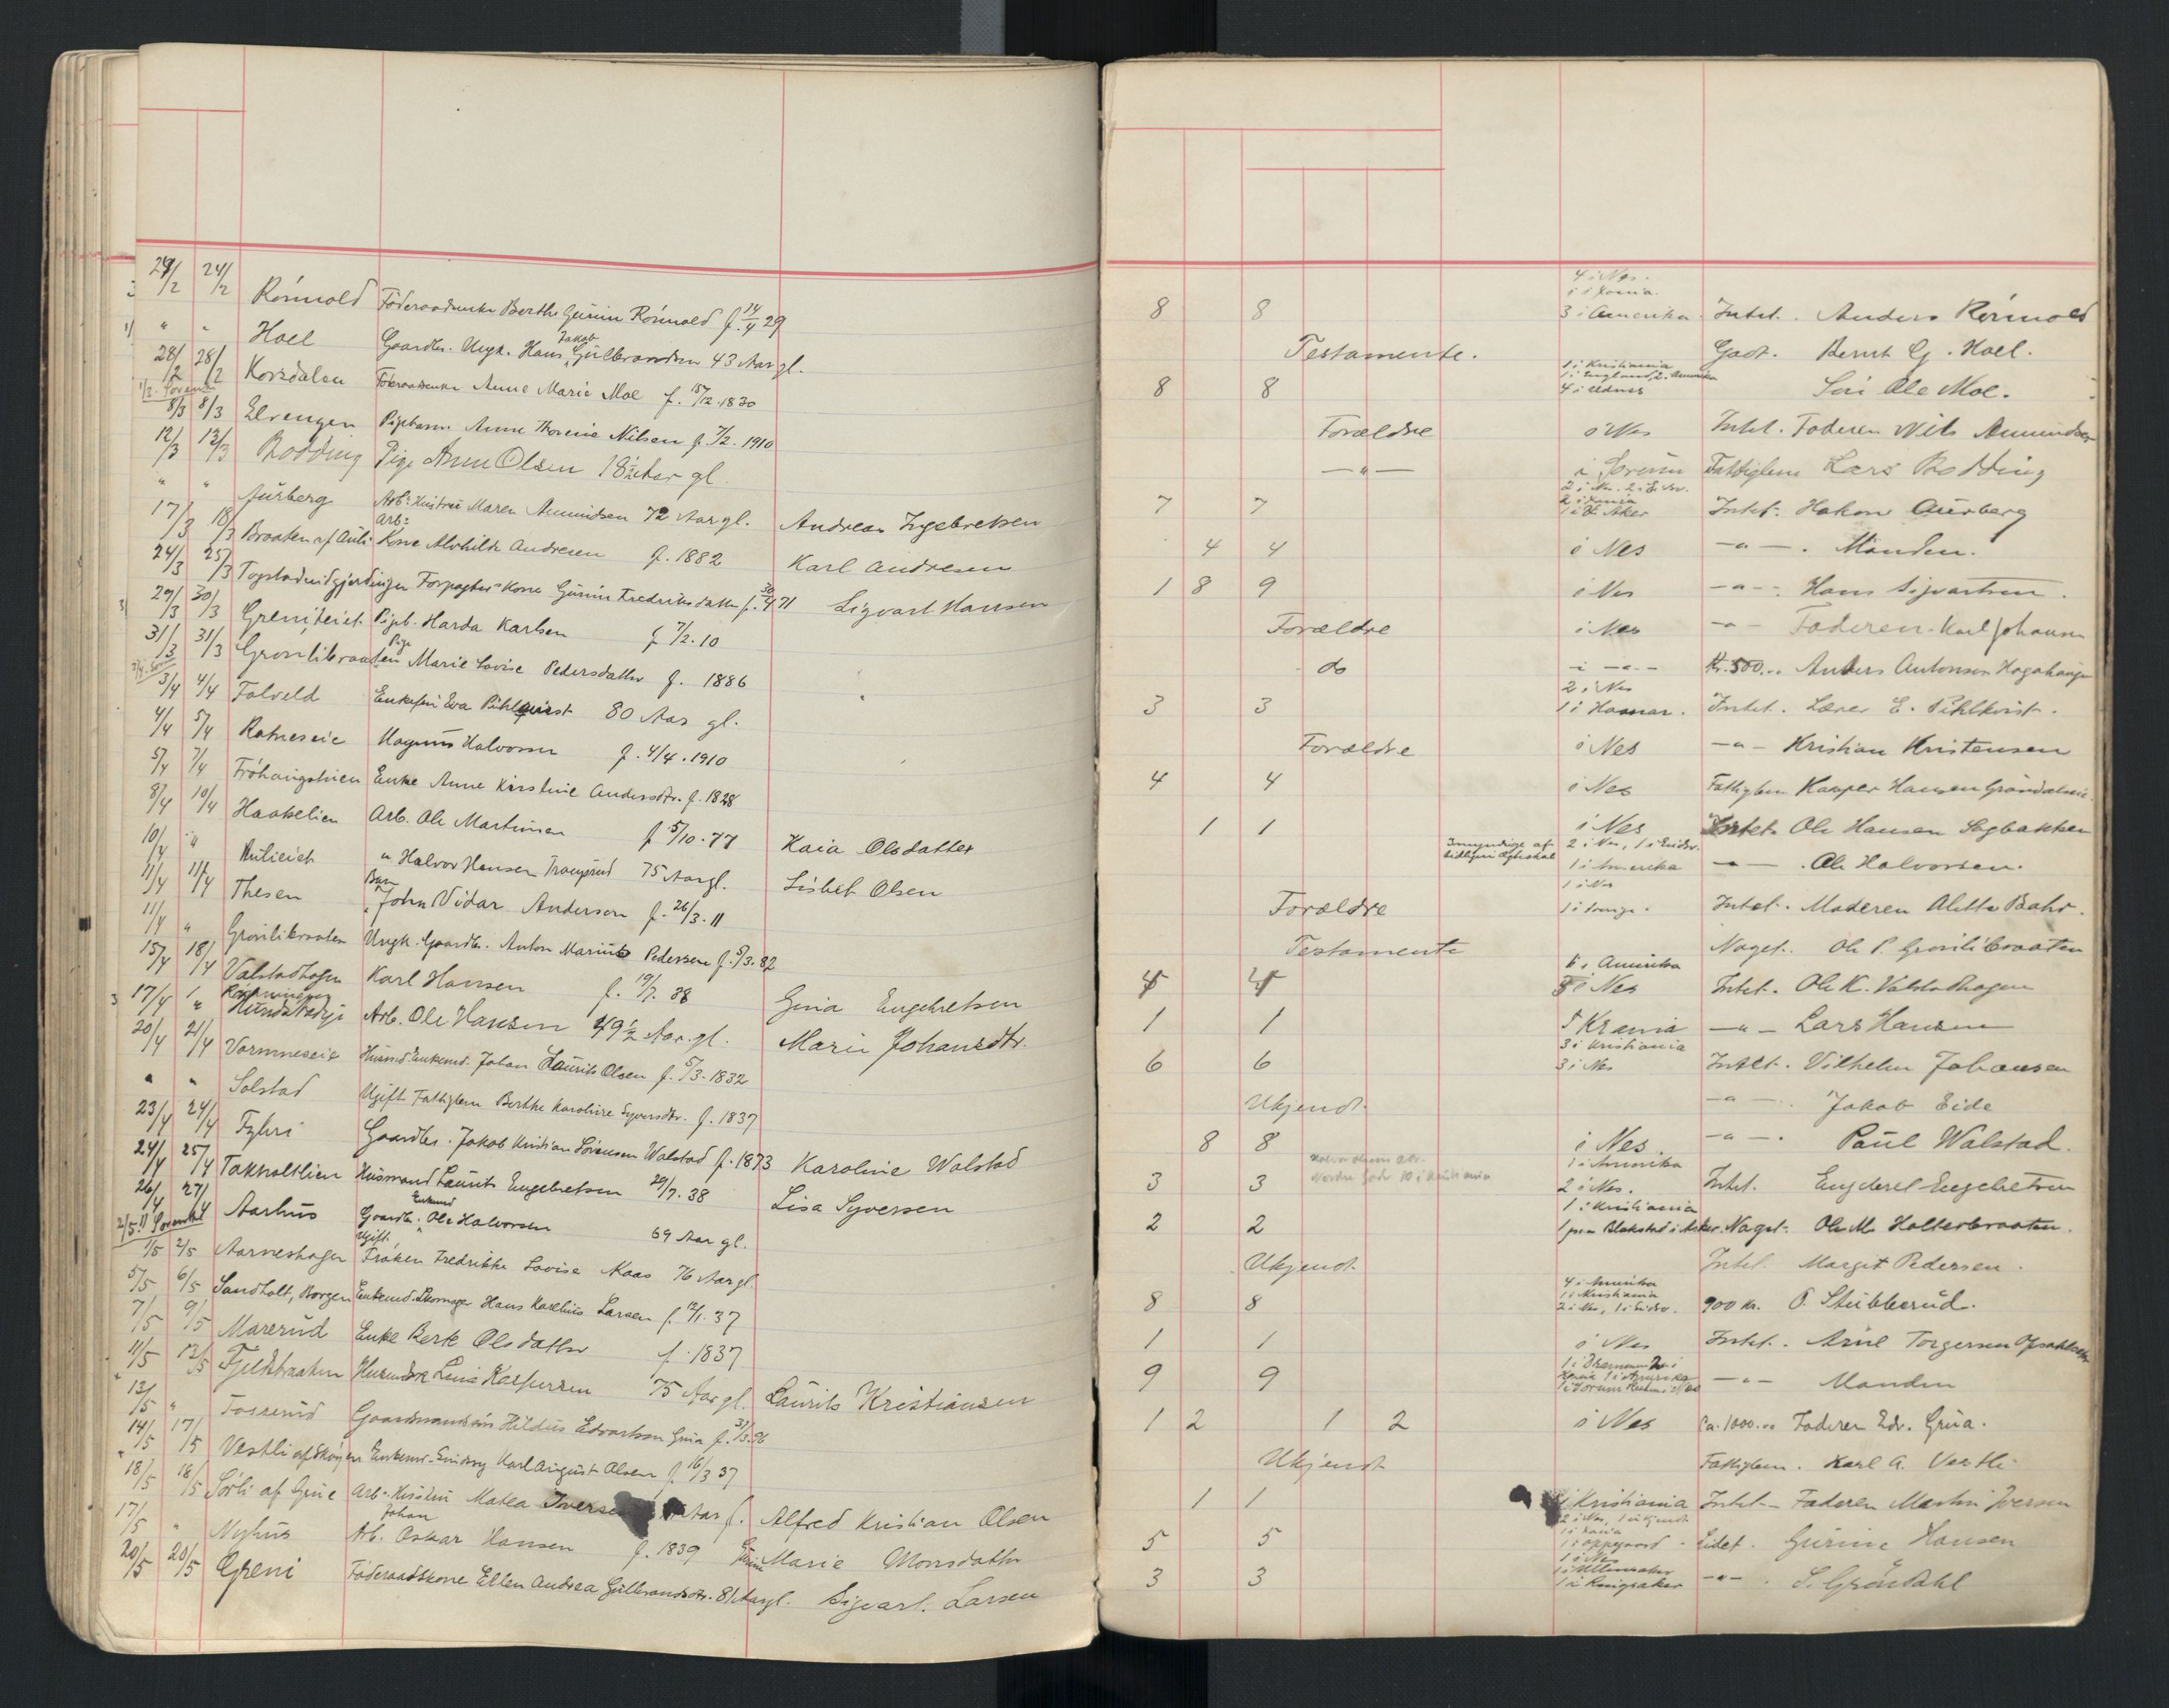 24/2 24/2 Römold Föderaadsenke Berthe Gurine Römold f. 14/4 29
" " Hoel Gaardbr. Ungk. Hans Jakob Gulbrandsen 43 Aar gl.
28/2 28/2 Korsdalen Föderaadsenke Anne Marie Moe f. 15/12.1830
8/3 8/3 Elvengen Pigebarn Anne Thorine Nilsen f. 7/2. 1910
12/3 12/3 Rodding Pige Anne Olsen 18 1/2 Aar gl.
" " Aurberg Arb: Hustru Maren Amundsen 72 Aar gl. Andreas Ingebretsen
17/3 18/3 Braaten af Auli Arb: Kone Alvhilde Andresen f. 1882 Karl Andresen
24/3 25/3 Forpagter Kone Gurine Fredriksdatter f. 30/4 71 Sigvart Hansen
29/3 30/3 Greniteiet Pigeb. Harda Karlsen f 7/2.10
31/3 31/3 Gronlibraaten Pige Marie Lovise Pedersdatter f. 1886
3/4 4/4 Folveld Enkefru Eva Pihlquist 80 Aar gl.
4/4 5/4 Ratneseie Magnus Halvorsen f. 4/4.1910
5/4 7/4 Fröhaugshien Enke Anne Kirstine Andersdtr. f. 1828
8/4 10/4 Haakelien Arb. Ole Martinsen f 5/10.77 Kaia Olsdatter
10/4 " " Halvor Hansen 75 Aar gl. Lisbet Olsen
11/4 11/4 Thesen Barn John Vidar Andersen f. 26/3.11
11/4 " Gronlibraaten Ungk. Gaardbr. Anton Marius Pedersen f. 5/3.82
15/4 18/4 Valstadhagen Karl Hansen f. 19/7. 38 Gina Engebretsen
17/4 " Arb. Ole Hansen 49 1/2 Aar gl. Marie Johansdtr.
20/4 21/4 Vormneseie Husmd. Enkemd. Johan Laurits Olsen f. 5/3.1832
" " Solstad Ugift Fattiglem Berthe Karoline Syversdtr. f. 1837
23/4 24/4 Fyhri Gaardbr. Jakob Kristian Sörensen Walstad f. 1873 Karoline Walstad
24/4 25/4 Takholtlien Husmand Laurits Engebretsen 29/7. 38 Lisa Syversen
26/4 27/4 Aarhus Gaardbr. Enkemd Ole Halvorsen 69 Aar gl.
1/5 2/5 Aarneshagen Ugift Fröken Fredrikke Lovise Kaas 76 Aar gl.
5/5 6/5 Sandholt, Borgen Enkemd. Skomager Hans Karelius Larsen f. 12/1.37
7/5 9/5 Marerud Enke Berte Olsdatter f. 1837
11/5 12/5 Fjeldbraaten Lina Kaspersen 75 Aar gl. Laurits Kristiansen
13/5 " Fosserud Gaardmandssön Hildus Edvartsen Grua f. 31/3.96
14/5 17/5 Vestli af Skogen Enkemd. Karl August Olsen f 16/3 37
18/5 18/5 Sörli af Grue Arb. Hustru Matea Iversen Aar f. Alfred Kristian Olsen
17/5 " Nyhus Arb. Johan Oskar Hansen f. 1839 Gurine Marie Monsdatter
20/5 20/5 Greni Föderaadskone Ellen Andrea Gulbrandsdtr. 81 Aar gl. Sigvart Larsen
8 8 4 i Nes. 3 i Amerika Intet. Anders Römold
Testamente. Godt. Bernt G. Hoel.
8 8 1 i Kristiania 1 i England, 2 i Amerika 4 i Udnes Ole Moe.
Forældre i Nes Intet. Faderen Nils Amundsen
—"— i Sorum Fattiglem Lars Rodding
7 7 1 i V. Aker Intet. Hakon Aurberg
4 4 i Nes —"—. Manden.
1 8 9 i Nes —"—. Hans Sigvartsen.
Forældre i Nes —"— Faderen Karl Johansen
do i —"— Kr. 500.. Anders Antonsen Hagahaugen
3 3 2 i Nes 1 i Hamar. Intet. Lærer E. Pihlkvist.
Forældre i Nes —"— Kristian Kristensen
4 4 i Nes Fattiglem Kasper Hansen
1 1 i Nes Intet. Ole Hansen Sagbakken
2 i Nes, 1 i Eidsv. 1 i Amerika —"—. Ole Halvorsen.
Forældre 1 i Nes 1 i Sverige. Intet. Moderen Alette Bahr.
Testamente Noget. Ole P. Gronlibraaten
6 i Amerika i Nes Intet. Ole K. Valstadhagen
1 1 i Krania —"— Lars Hansen
6 6 3 i Kristiania 3 i Nes Intet. Vilhelm Johansen
Ukjendt. —"—. Jakob Eide
8 8 i Nes —"—. Paul Walstad.
3 3 1 i Amerika 2 i Nes. Intet. Engebret Engebretsen
2 2 1 i Kristiania 1 paa Blakstad i Asker. Noget. Ole M. Holterbraaten.
Ukjendt. Intet. Margit Pedersen.
8 8 4 i Amerika 1 i Kristiania 2 i Nes, 1 i Eidsv. 900 kr. O. Stubberud.
1 1 i Nes Intet. Arne Torgersen
9 9 —"— Manden
1 2 1 2 i Nes Ca. 1000... Faderen Edv. Grua.
Ukjendt Fattiglem. Karl A. Vestli
1 1 i Kristiania Intet— Faderen Martin Iversen
5 5 2 i Nes, 1 ukjendt 1 i Kania 1 i Oppegaard Lidet. Gurine Hansen
3 3 1 i Nes 1 i Ullensaker 1 i Ringsaker —"—. S. Gröndahl